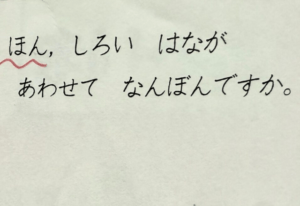 ほん, しろい　はなが
あわせて　なんぼんですか。